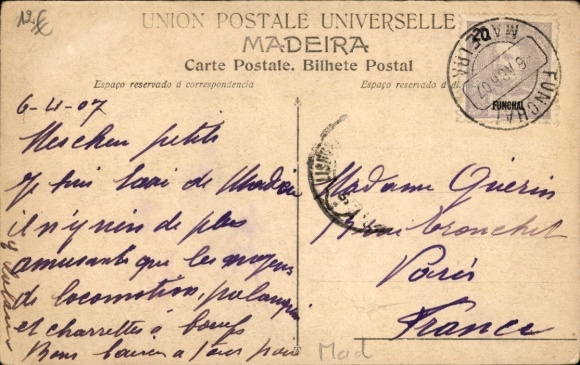 12 €
UNION POSTALE UNIVERSELLE
MADEIRA
Carte Postale. Bilhete Postal
Espaço reservado á correspondencia
Espaço reservado á
FUNCHAL
MADEIRA
FUNCHAL
6-4-07
Mes chers petits
Je suis ravi de Madère
il n'y rien de plus
amusants que les moyens
de locomotion, palanquin
et charrettes à bœufs
Bons baisers à tous
Madame Guérin
rue Tronchet
Paris
France
LISBOA
Mad